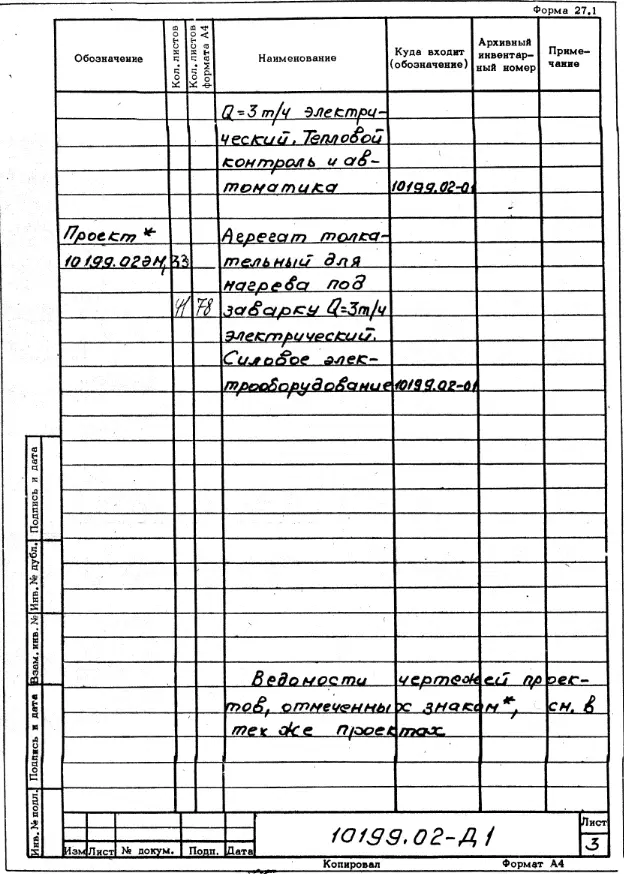 Форма 27.1
Обозначение Кол. листов Кол. листов формата А4 Наименование Куда входит (обозначение) Архивный инвентарный номер Примечание
Q=3т/ч электри-
ческий. Тепловой
контроль и ав-
томатика 10199.02-01
Проект * Агрегат толка-
10199.02ЭМ, 33 тельный для
нагрева под
41 78 заварку Q=3т/ч
электрический.
Силовое элек-
трооборудование 10199.02-01
Ведомости чертежей проек-
тов, отмеченных знаком*, см. в
тех же проектах
Подпись и дата
Инв. № дубл.
Взам. инв. №
Подпись и дата
Инв. № подл.
10199.02-Д1
Лист
3
Изм Лист № докум. Подп. Дата
Копировал Формат А4